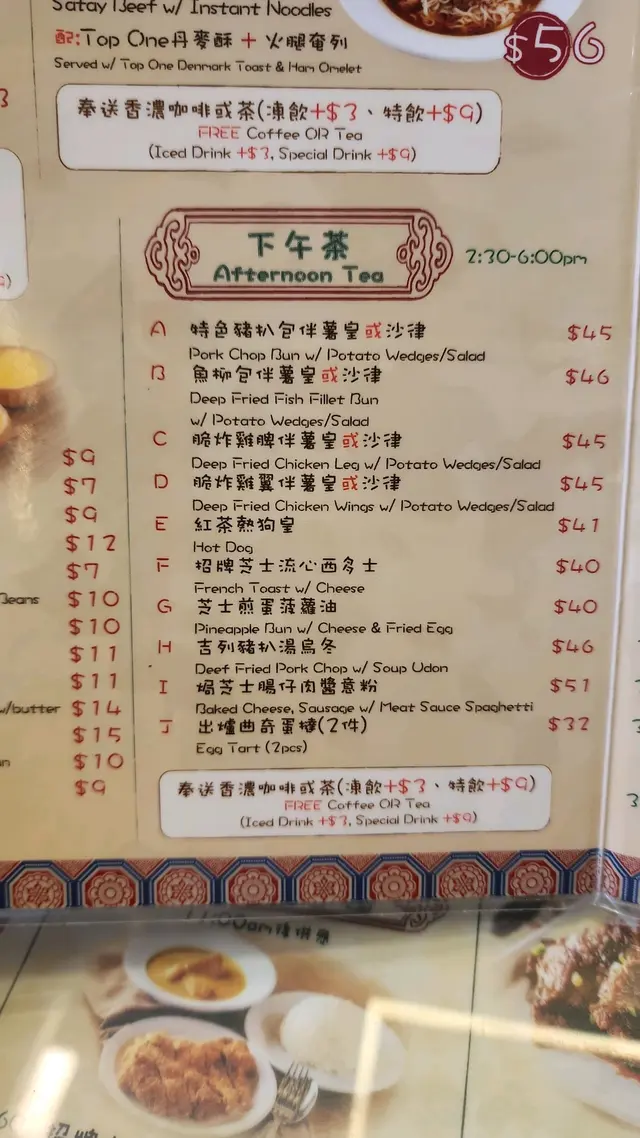 Satay Beef w/ Instant Noodles
配:Top One丹麥酥 + 火腿奄列
$56
Served w/ Top One Denmark Toast & Ham Omelet
奉送香濃咖啡或茶(凍飲+$3、特飲+$9)
FREE Coffee OR Tea
(Iced Drink +$3, Special Drink +$9)
下午茶
Afternoon Tea
2:30-6:00pm
A 特色豬扒包伴薯皇或沙律 $45
Pork Chop Bun w/ Potato Wedges/Salad
B 魚柳包伴薯皇或沙律 $46
Deep Fried Fish Fillet Bun
w/ Potato Wedges/Salad
C 脆炸雞髀伴薯皇或沙律 $45
Deep Fried Chicken Leg w/ Potato Wedges/Salad
D 脆炸雞翼伴薯皇或沙律 $45
Deep Fried Chicken Wings w/ Potato Wedges/Salad
E 紅茶熱狗皇 $41
Hot Dog
F 招牌芝士流心西多士 $40
French Toast w/ Cheese
G 芝士煎蛋菠蘿油 $40
Pineapple Bun w/ Cheese & Fried Egg
H 吉列豬扒湯烏冬 $46
Deef Fried Pork Chop w/ Soup Udon
I 焗芝士腸仔肉醬意粉 $51
Baked Cheese, Sausage w/ Meat Sauce Spaghetti
J 出爐曲奇蛋撻(2件) $32
Egg Tart (2pcs)
奉送香濃咖啡或茶(凍飲+$3、特飲+$9)
FREE Coffee OR Tea
(Iced Drink +$3, Special Drink +$9)
$9
$7
$9
$12
$7
Beans $10
$10
$11
$11
w/butter $14
$15
$10
$9
11:00am後供應